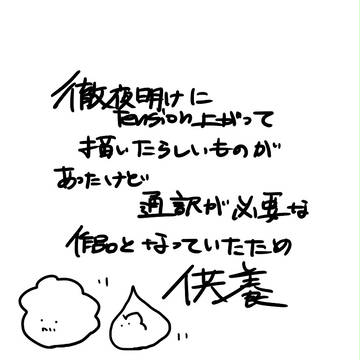 徹夜明けに
tension上がって
描いたらしいものが
あったけど
通訳が必要な
作品となっていたため
供養